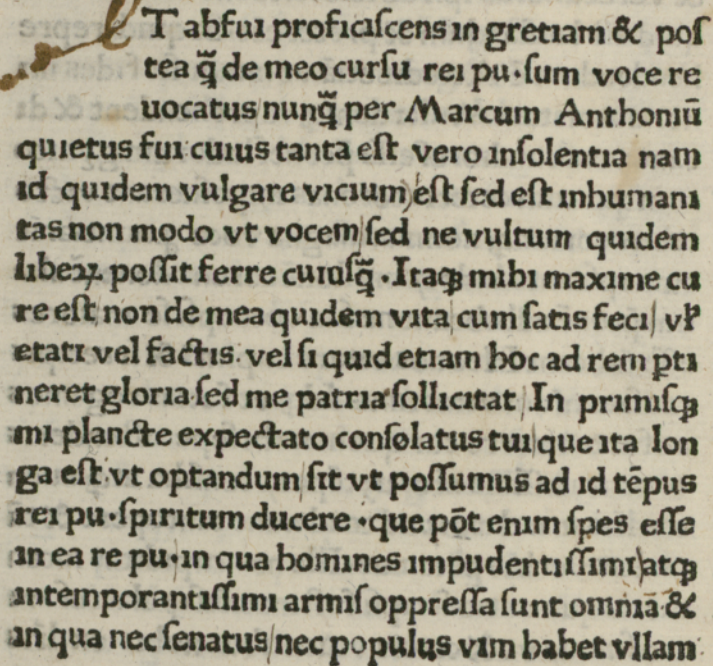 T abſui proficiſcens in gretiam & poſ
tea q̄̃ de meo curſu rei pu·ſum voce re
uocatus nunq̄̃ per Marcum Anthoniū
quietus fui cuius tanta eſt vero inſolentia nam
id quidem vulgare vicium eſt ſed eſt inhumani
tas non modo vt vocem ſed ne vultum quidem
libeꝝ poſſit ferre cuiuſq̄̃ · Itaqꝫ mihi maxime cu
re eſt non de mea quidem vita cum ſatis feci vł
etati vel factis. vel ſi quid etiam hoc ad rem ꝑti
neret gloria ſed me patria ſollicitat In primiſqꝫ
mi plancte expectato conſolatus tui que ita lon
ga eſt vt optandum ſit vt poſſumus ad id tēpus
rei pu·ſpiritum ducere · que pōt enim ſpes eſſe
in ea re pu·in qua homines impudentiſſimi atqꝫ
intemporantiſſimi armiſ oppreſſa ſunt omnia &
in qua nec ſenatus nec populus vim habet vllam